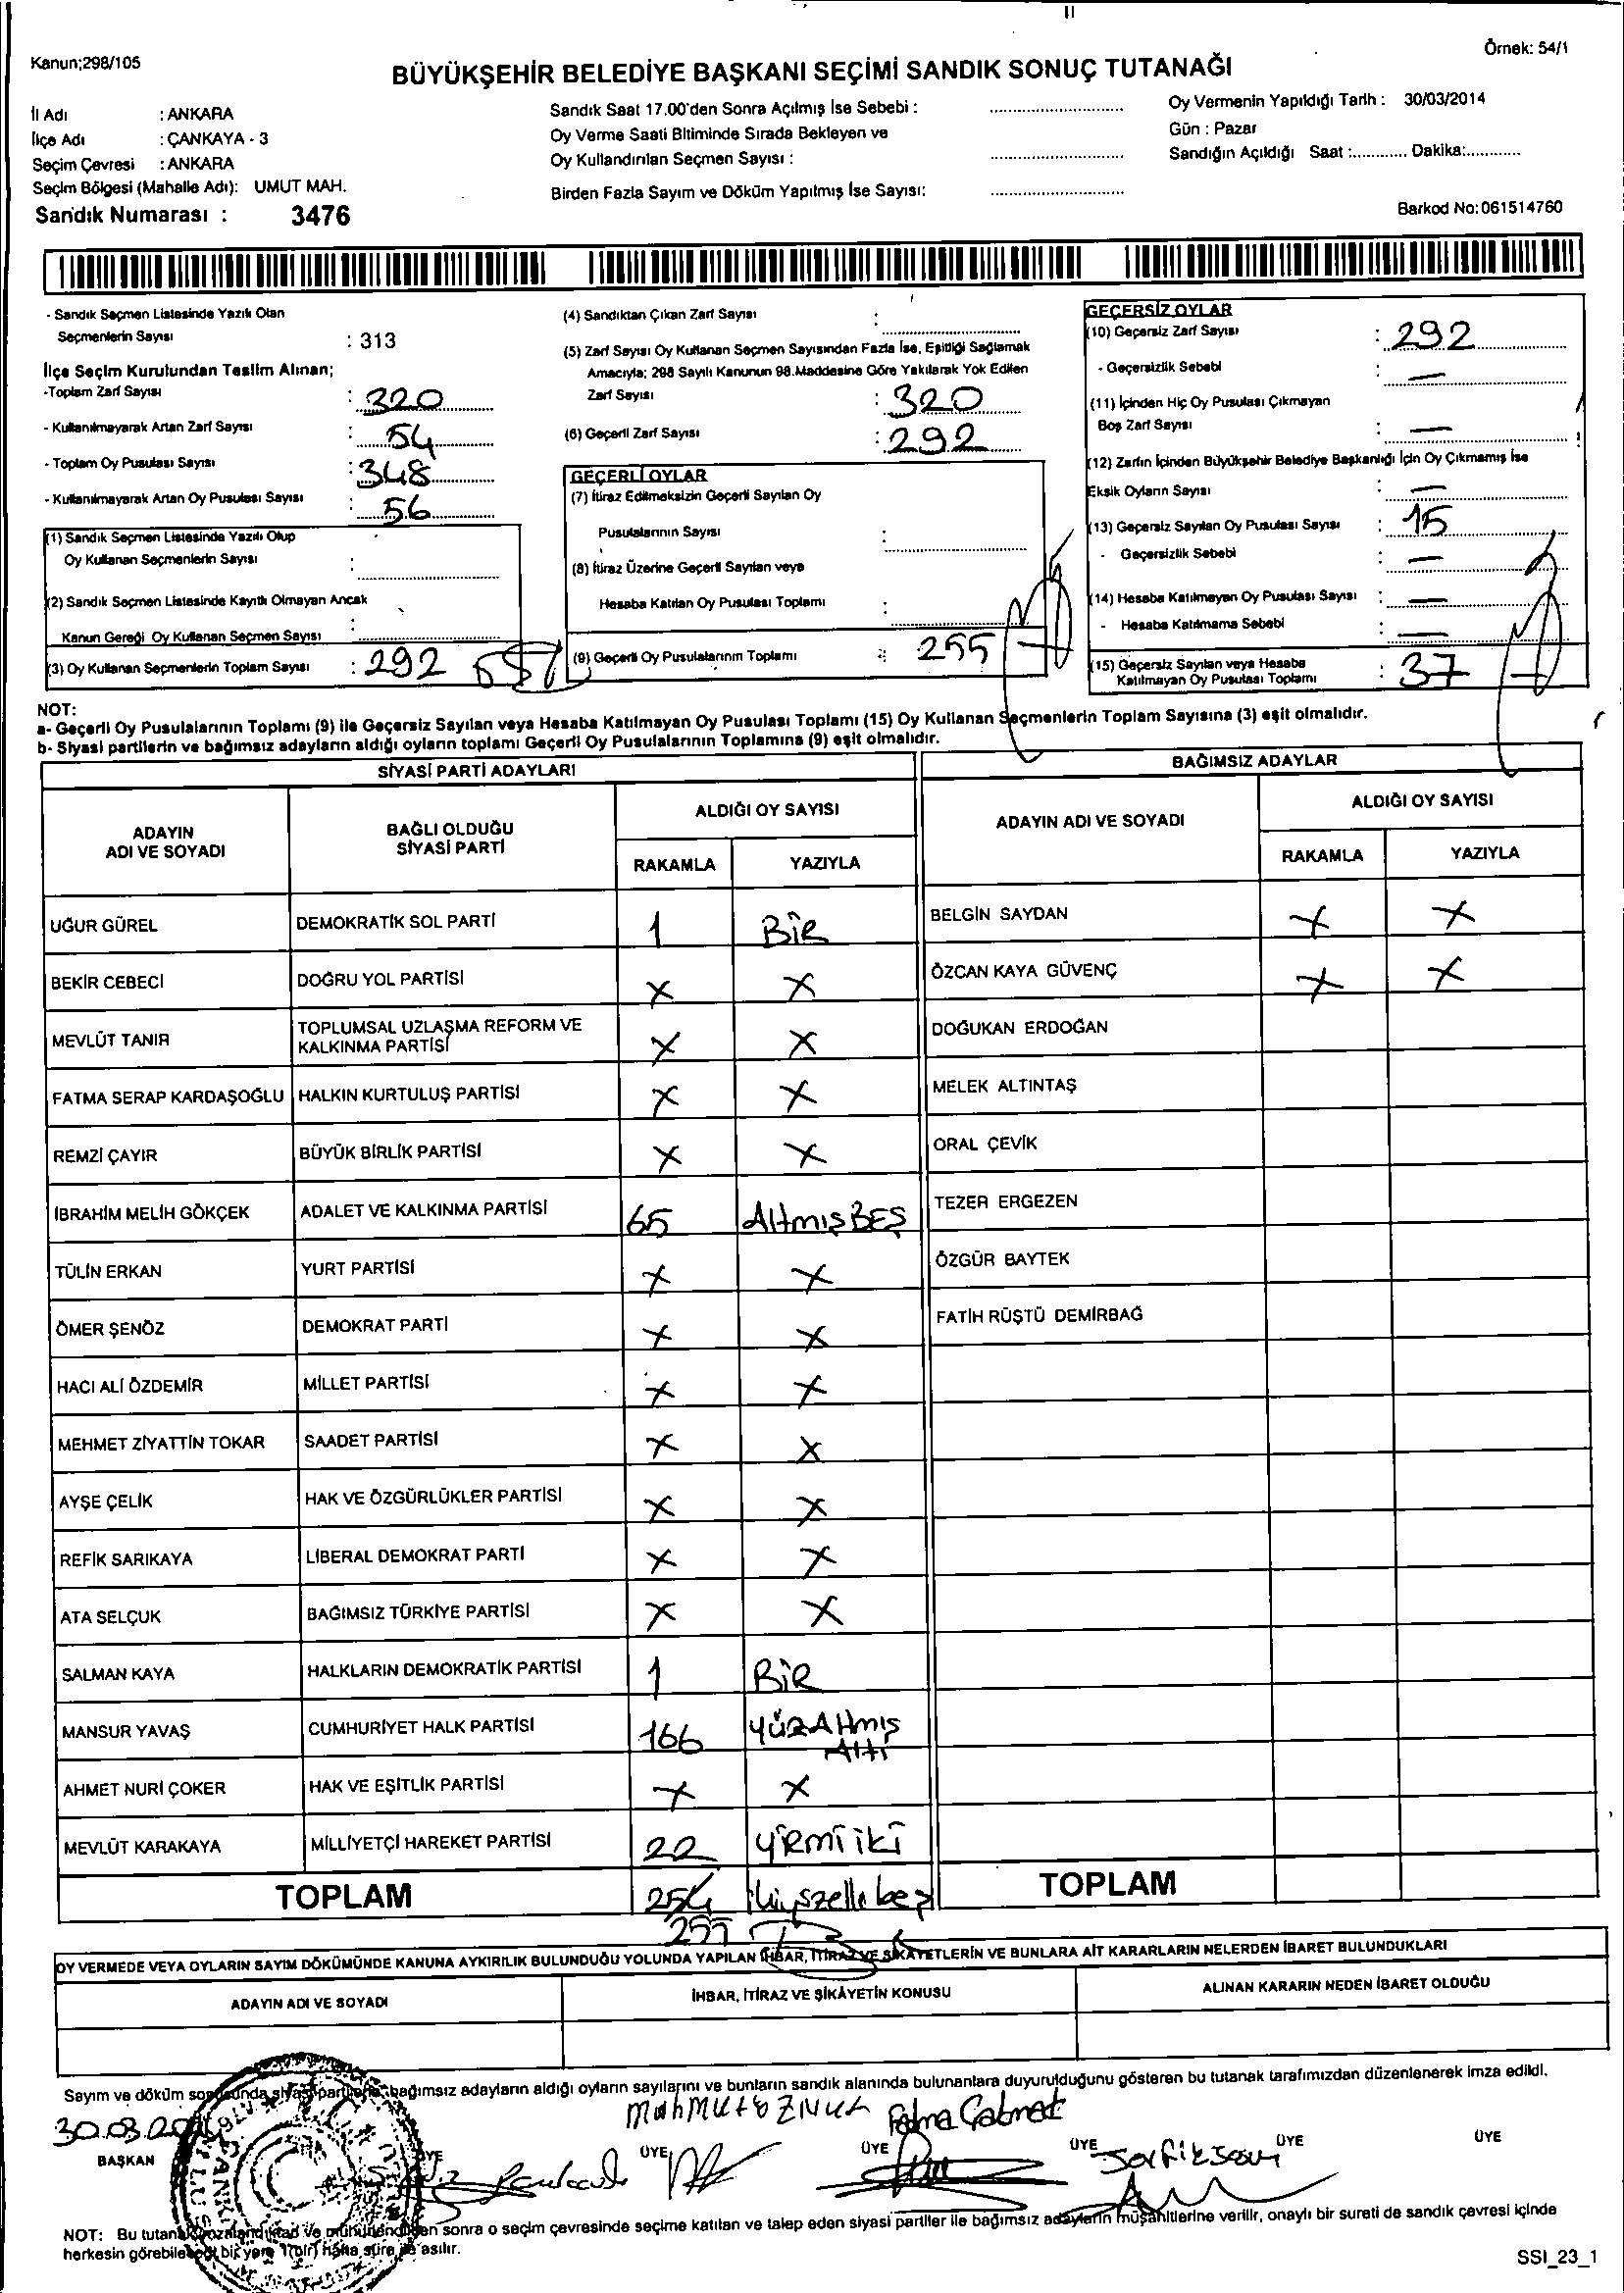 Kanun;298/105
BÜYÜKŞEHİR BELEDİYE BAŞKANI SEÇİMİ SANDIK SONUÇ TUTANAĞI
Örnek: 54/1
İl Adı : ANKARA
İlçe Adı : ÇANKAYA - 3
Seçim Çevresi : ANKARA
Seçim Bölgesi (Mahalle Adı): UMUT MAH.
Sandık Numarası : 3476
Sandık Saat 17.00'den Sonra Açılmış İse Sebebi :
Oy Verme Saati Bitiminde Sırada Bekleyen ve
Oy Kullandırılan Seçmen Sayısı :
Birden Fazla Sayım ve Döküm Yapılmış İse Sayısı:
Oy Vermenin Yapıldığı Tarih : 30/03/2014
Gün : Pazar
Sandığın Açıldığı Saat :............ Dakika:............
Barkod No:061514760
- Sandık Seçmen Listesinde Yazılı Olan
Seçmenlerin Sayısı : 313
İlçe Seçim Kurulundan Teslim Alınan;
-Toplam Zarf Sayısı : 320
- Kullanılmayarak Artan Zarf Sayısı : 54
- Toplam Oy Pusulası Sayısı : 348
- Kullanılmayarak Artan Oy Pusulası Sayısı : 56
(1) Sandık Seçmen Listesinde Yazılı Olup
Oy Kullanan Seçmenlerin Sayısı :
(2) Sandık Seçmen Listesinde Kayıtlı Olmayan Ancak
Kanun Gereği Oy Kullanan Seçmen Sayısı :
(3) Oy Kullanan Seçmenlerin Toplam Sayısı : 292
(4) Sandıktan Çıkan Zarf Sayısı :
(5) Zarf Sayısı Oy Kullanan Seçmen Sayısından Fazla İse, Eşitliği Sağlamak
Amacıyla; 298 Sayılı Kanunun 98.Maddesine Göre Yakılarak Yok Edilen
Zarf Sayısı : 320
(6) Geçerli Zarf Sayısı : 292
GEÇERLİ OYLAR
(7) İtiraz Edilmeksizin Geçerli Sayılan Oy
Pusulalarının Sayısı :
(8) İtiraz Üzerine Geçerli Sayılan veya
Hesaba Katılan Oy Pusulası Toplamı :
(9) Geçerli Oy Pusulalarının Toplamı : 255
GEÇERSİZ OYLAR
(10) Geçersiz Zarf Sayısı : 292
- Geçersizlik Sebebi : —
(11) İçinden Hiç Oy Pusulası Çıkmayan
Boş Zarf Sayısı : —
(12) Zarfın İçinden Büyükşehir Belediye Başkanlığı İçin Oy Çıkmamış İse
Eksik Oyların Sayısı : —
(13) Geçersiz Sayılan Oy Pusulası Sayısı : 15
- Geçersizlik Sebebi : —
(14) Hesaba Katılmayan Oy Pusulası Sayısı : —
- Hesaba Katılmama Sebebi : —
(15) Geçersiz Sayılan veya Hesaba
Katılmayan Oy Pusulası Toplamı : 37
NOT:
a- Geçerli Oy Pusulalarının Toplamı (9) ile Geçersiz Sayılan veya Hesaba Katılmayan Oy Pusulası Toplamı (15) Oy Kullanan Seçmenlerin Toplam Sayısına (3) eşit olmalıdır.
b- Siyasi partilerin ve bağımsız adayların aldığı oyların toplamı Geçerli Oy Pusulalarının Toplamına (9) eşit olmalıdır.
SİYASİ PARTİ ADAYLARI
ADAYIN ADI VE SOYADI
BAĞLI OLDUĞU SİYASİ PARTİ
ALDIĞI OY SAYISI
RAKAMLA YAZIYLA
UĞUR GÜREL DEMOKRATİK SOL PARTİ 1 BİR
BEKİR CEBECİ DOĞRU YOL PARTİSİ X X
MEVLÜT TANIR TOPLUMSAL UZLAŞMA REFORM VE KALKINMA PARTİSİ X X
FATMA SERAP KARDAŞOĞLU HALKIN KURTULUŞ PARTİSİ X X
REMZİ ÇAYIR BÜYÜK BİRLİK PARTİSİ X X
İBRAHİM MELİH GÖKÇEK ADALET VE KALKINMA PARTİSİ 65 AltmışBEŞ
TÜLİN ERKAN YURT PARTİSİ X X
ÖMER ŞENÖZ DEMOKRAT PARTİ X X
HACI ALİ ÖZDEMİR MİLLET PARTİSİ X X
MEHMET ZİYATTİN TOKAR SAADET PARTİSİ X X
AYŞE ÇELİK HAK VE ÖZGÜRLÜKLER PARTİSİ X X
REFİK SARIKAYA LİBERAL DEMOKRAT PARTİ X X
ATA SELÇUK BAĞIMSIZ TÜRKİYE PARTİSİ X X
SALMAN KAYA HALKLARIN DEMOKRATİK PARTİSİ 1 BİR
MANSUR YAVAŞ CUMHURİYET HALK PARTİSİ 166 YÜZAltmış Altı
AHMET NURİ ÇOKER HAK VE EŞİTLİK PARTİSİ X X
MEVLÜT KARAKAYA MİLLİYETÇİ HAREKET PARTİSİ 22 YİRMİ İKİ
TOPLAM 254
255
BAĞIMSIZ ADAYLAR
ADAYIN ADI VE SOYADI
ALDIĞI OY SAYISI
RAKAMLA YAZIYLA
BELGİN SAYDAN X X
ÖZCAN KAYA GÜVENÇ X X
DOĞUKAN ERDOĞAN
MELEK ALTINTAŞ
ORAL ÇEVİK
TEZER ERGEZEN
ÖZGÜR BAYTEK
FATİH RÜŞTÜ DEMİRBAĞ
TOPLAM
OY VERMEDE VEYA OYLARIN SAYIM DÖKÜMÜNDE KANUNA AYKIRILIK BULUNDUĞU YOLUNDA YAPILAN İHBAR, İTİRAZ VE ŞİKAYETLERİN VE BUNLARA AİT KARARLARIN NELERDEN İBARET BULUNDUKLARI
ADAYIN ADI VE SOYADI
İHBAR, İTİRAZ VE ŞİKÂYETİN KONUSU
ALINAN KARARIN NEDEN İBARET OLDUĞU
Sayım ve döküm sonucunda siyasi partilerin, bağımsız adayların aldığı oyların sayılarını ve bunların sandık alanında bulunanlara duyurulduğunu gösteren bu tutanak tarafımızdan düzenlenerek imza edildi.
BAŞKAN ÜYE ÜYE ÜYE ÜYE ÜYE ÜYE
NOT: Bu tutanak imzalandıktan ve mühürlendikten sonra o seçim çevresinde seçime katılan ve talep eden siyasi partiler ile bağımsız adayların müşahitlerine verilir, onaylı bir sureti de sandık çevresi içinde
herkesin görebileceği bir yere 1(bir) hafta süre ile asılır.
SSI_23_1